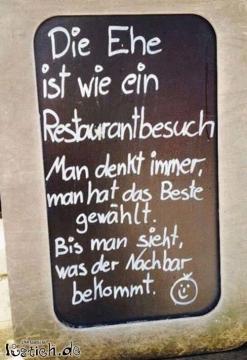 Die Ehe
ist wie ein
Restaurantbesuch
Man denkt immer,
man hat das Beste
gewählt.
Bis man sieht,
was der Nachbar
bekommt.
lustich.de